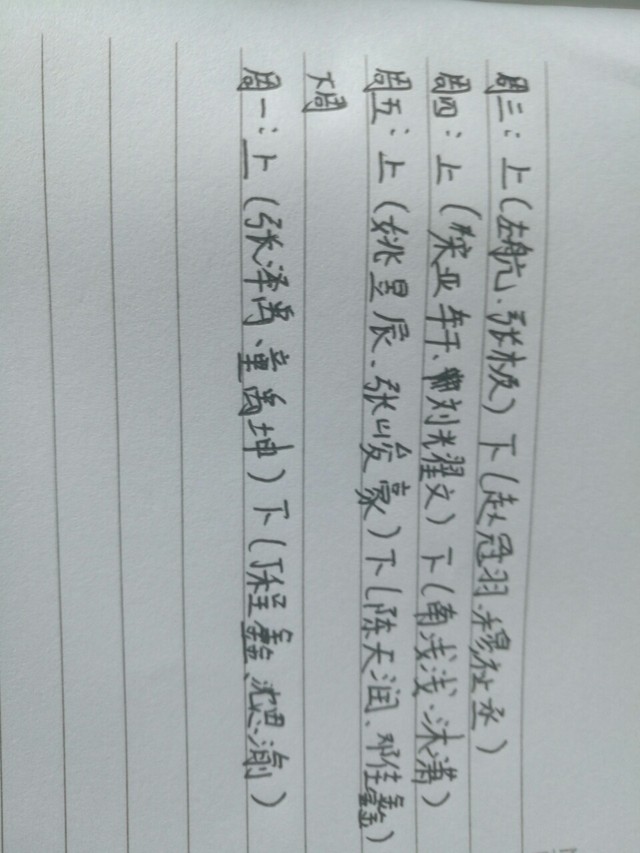 周三：上（左航、张极）下（赵冠羽、穆祉丞）
周四：上（宋亚轩、刘耀文）下（南浅浅、沐满）
周五：上（姚昱辰、张峻豪）下（陈天润、邓佳鑫）
下周
周一：上（张泽禹、童禹坤）下（程鑫、沈思渝）